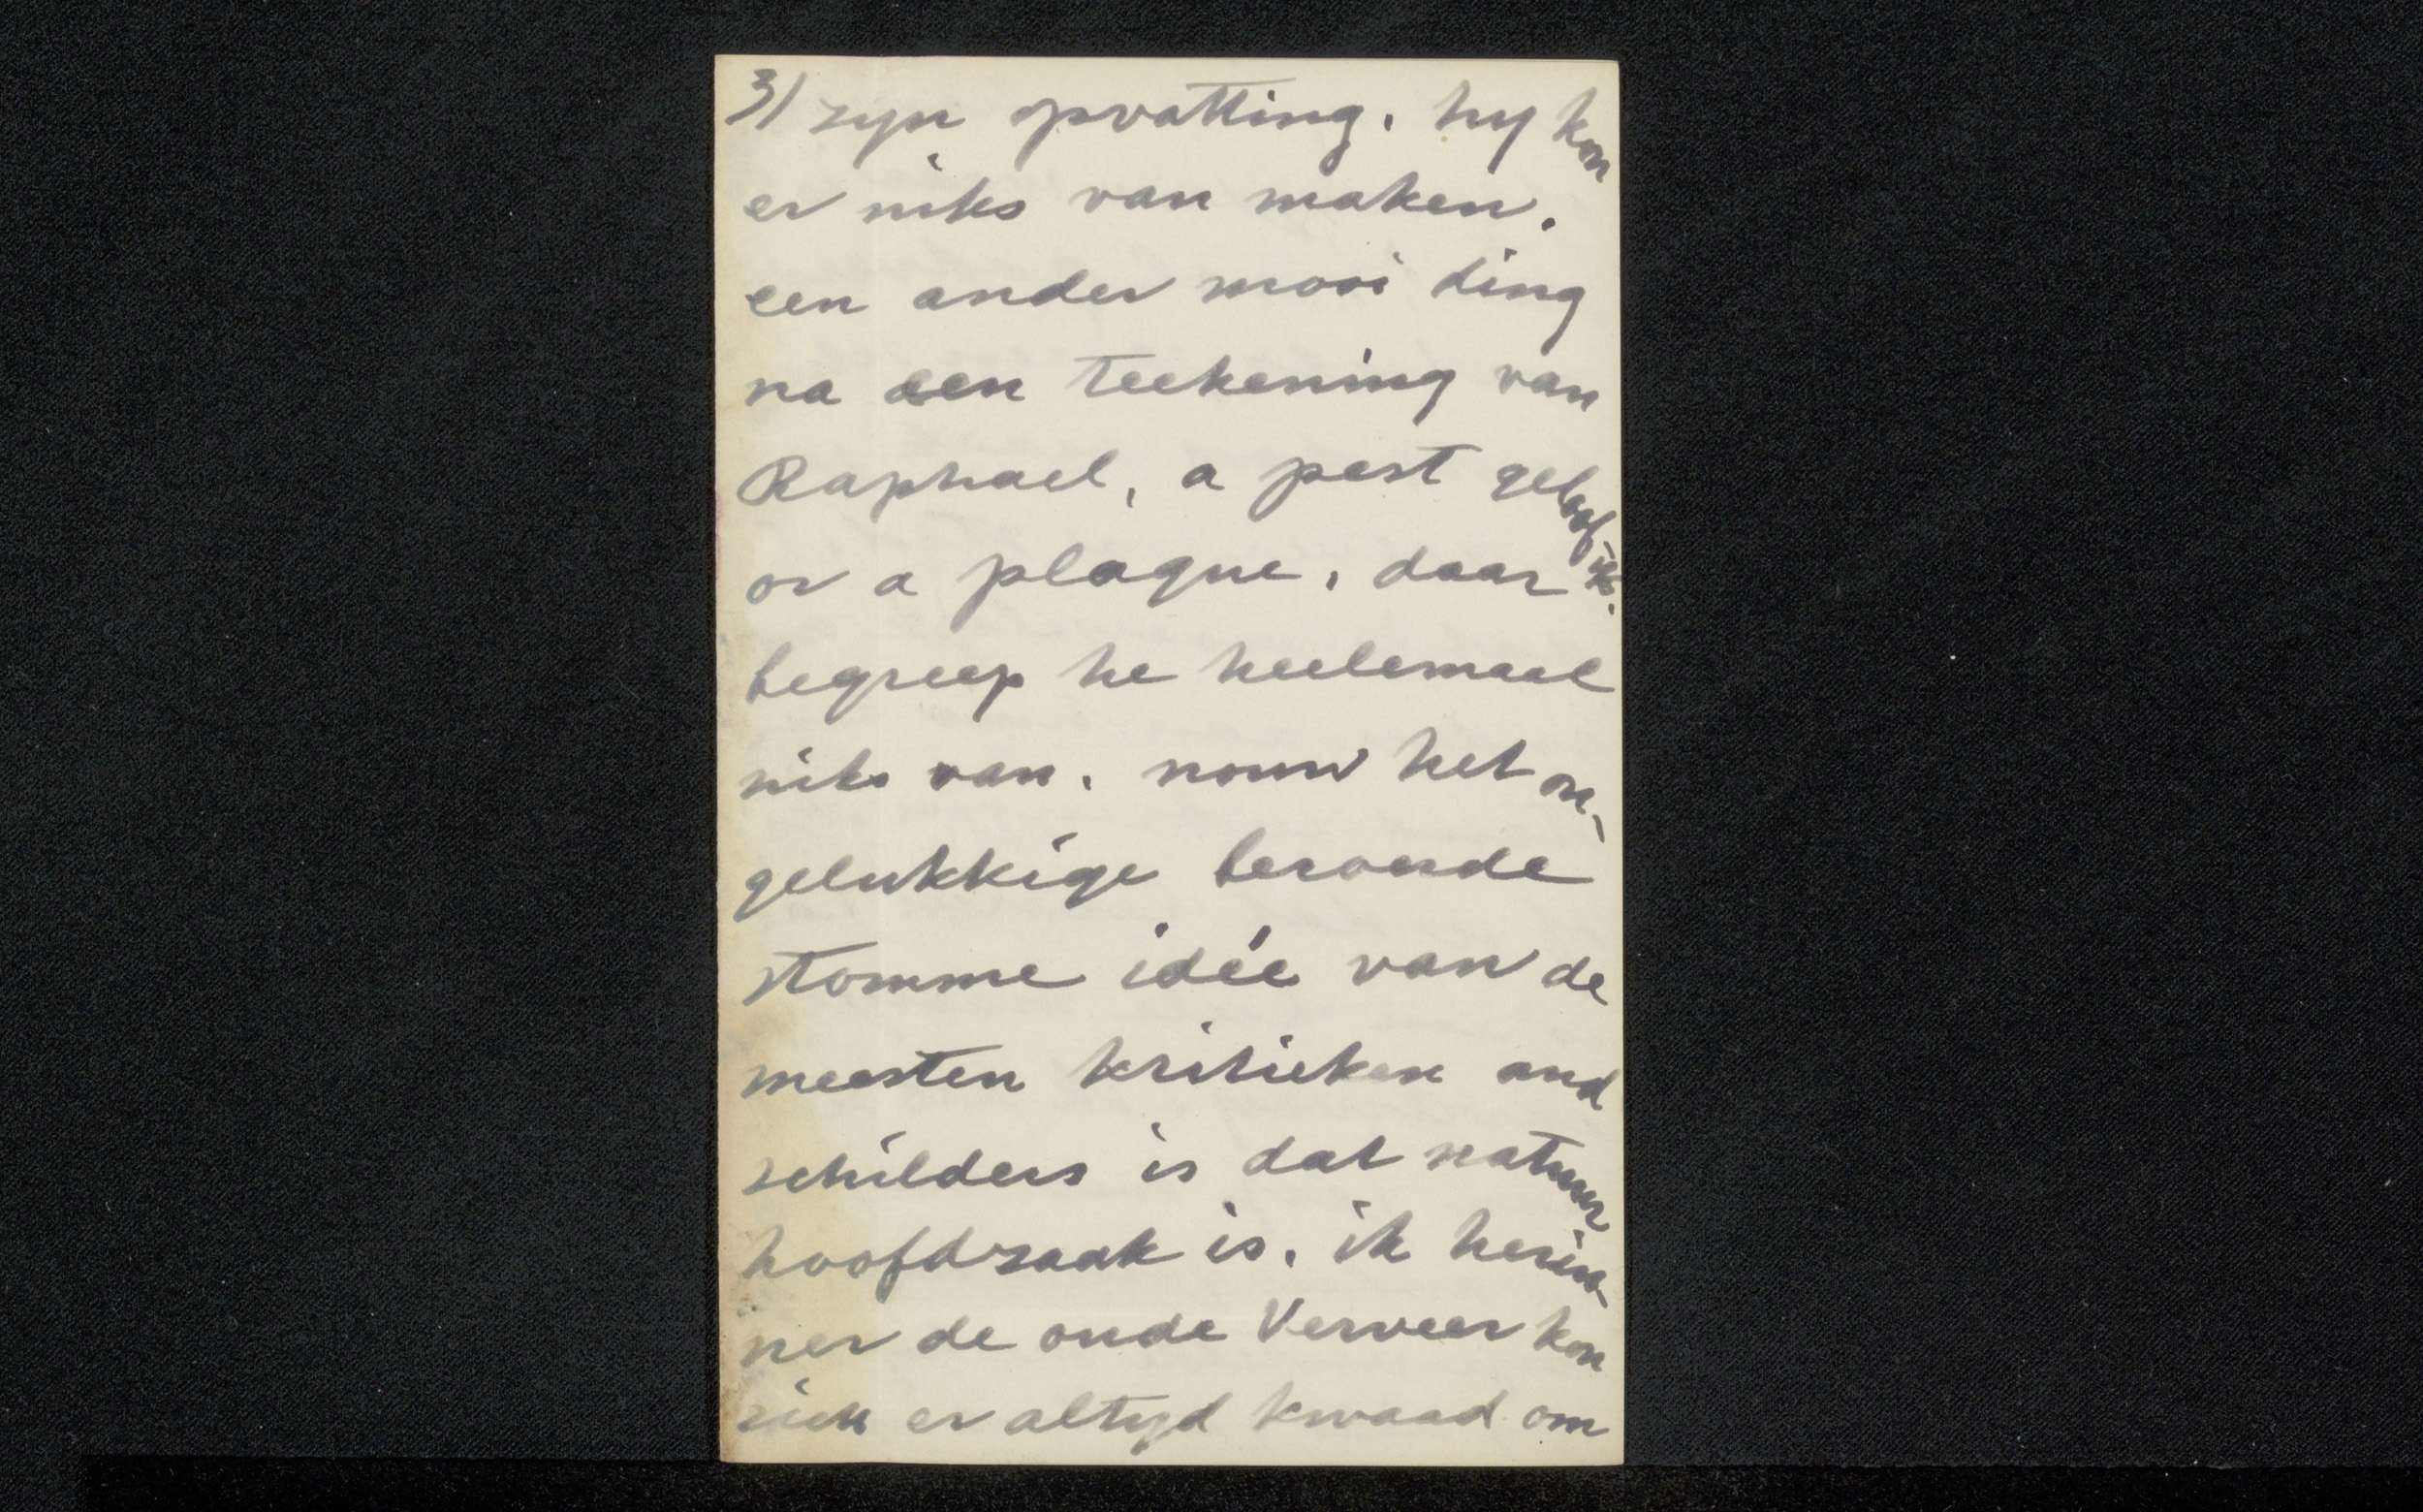 3/ zyn opvatting. hy kon
er niks van maken.
een ander mooi ding
na een teekening van
Raphael, a pest geloof-ik.
or a plague, daar
begreep he heelemaal
niks van. nouw het on-
gelukkige beroerde
stomme idée van de
meesten kritieken and
schilders is dat natuur
hoofdzaak is. ik herin-
ner de oude Verveer kon
zich er altyd kwaad om